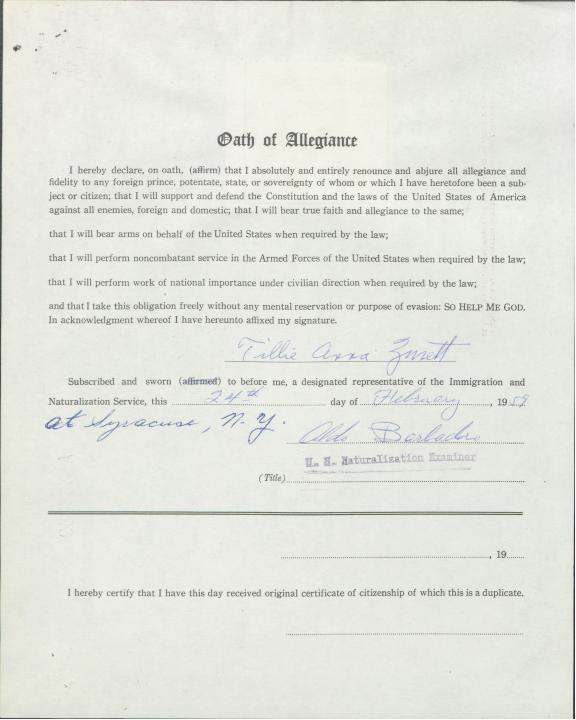 Oath of Allegiance
I hereby declare, on oath, (affirm) that I absolutely and entirely renounce and abjure all allegiance and
fidelity to any foreign prince, potentate, state, or sovereignty of whom or which I have heretofore been a sub-
ject or citizen; that I will support and defend the Constitution and the laws of the United States of America
against all enemies, foreign and domestic; that I will bear true faith and allegiance to the same;
that I will bear arms on behalf of the United States when required by the law;
that I will perform noncombatant service in the Armed Forces of the United States when required by the law;
that I will perform work of national importance under civilian direction when required by the law;
and that I take this obligation freely without any mental reservation or purpose of evasion: SO HELP ME GOD.
In acknowledgment whereof I have hereunto affixed my signature.
Tillie Anna
Subscribed and sworn (affirmed) to before me, a designated representative of the Immigration and
Naturalization Service, this 24th day of February, 1959
at Syracuse, N.Y. Aldo
U. S. Naturalization Examiner
(Title)
, 19
I hereby certify that I have this day received original certificate of citizenship of which this is a duplicate.